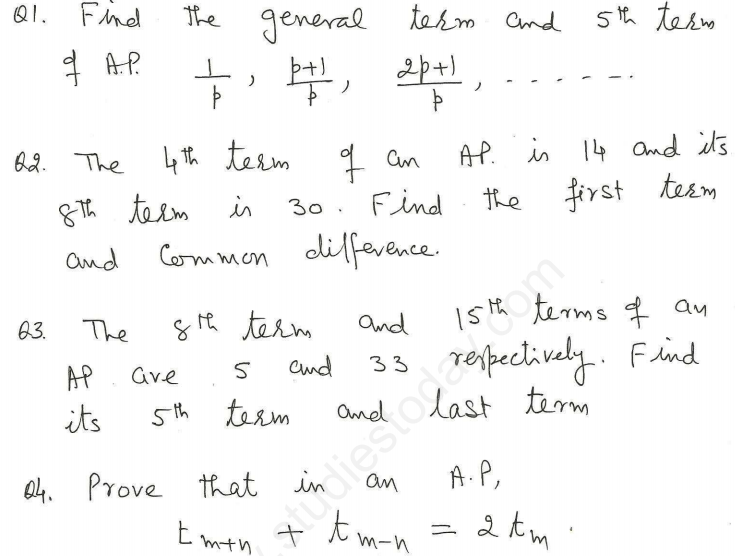 Q1. Find the general term and 5th term
of A.P. 1/p, p+1/p, 2p+1/p, - - - - - -.
Q2. The 4th term of an AP. is 14 and its
8th term is 30. Find the first term
and Common difference.
Q3. The 8th term and 15th terms of an
AP are 5 and 33 respectively. Find
its 5th term and last term
Q4. Prove that in an A.P,
t m+n + t m-n = 2 t m.
studiestoday.com